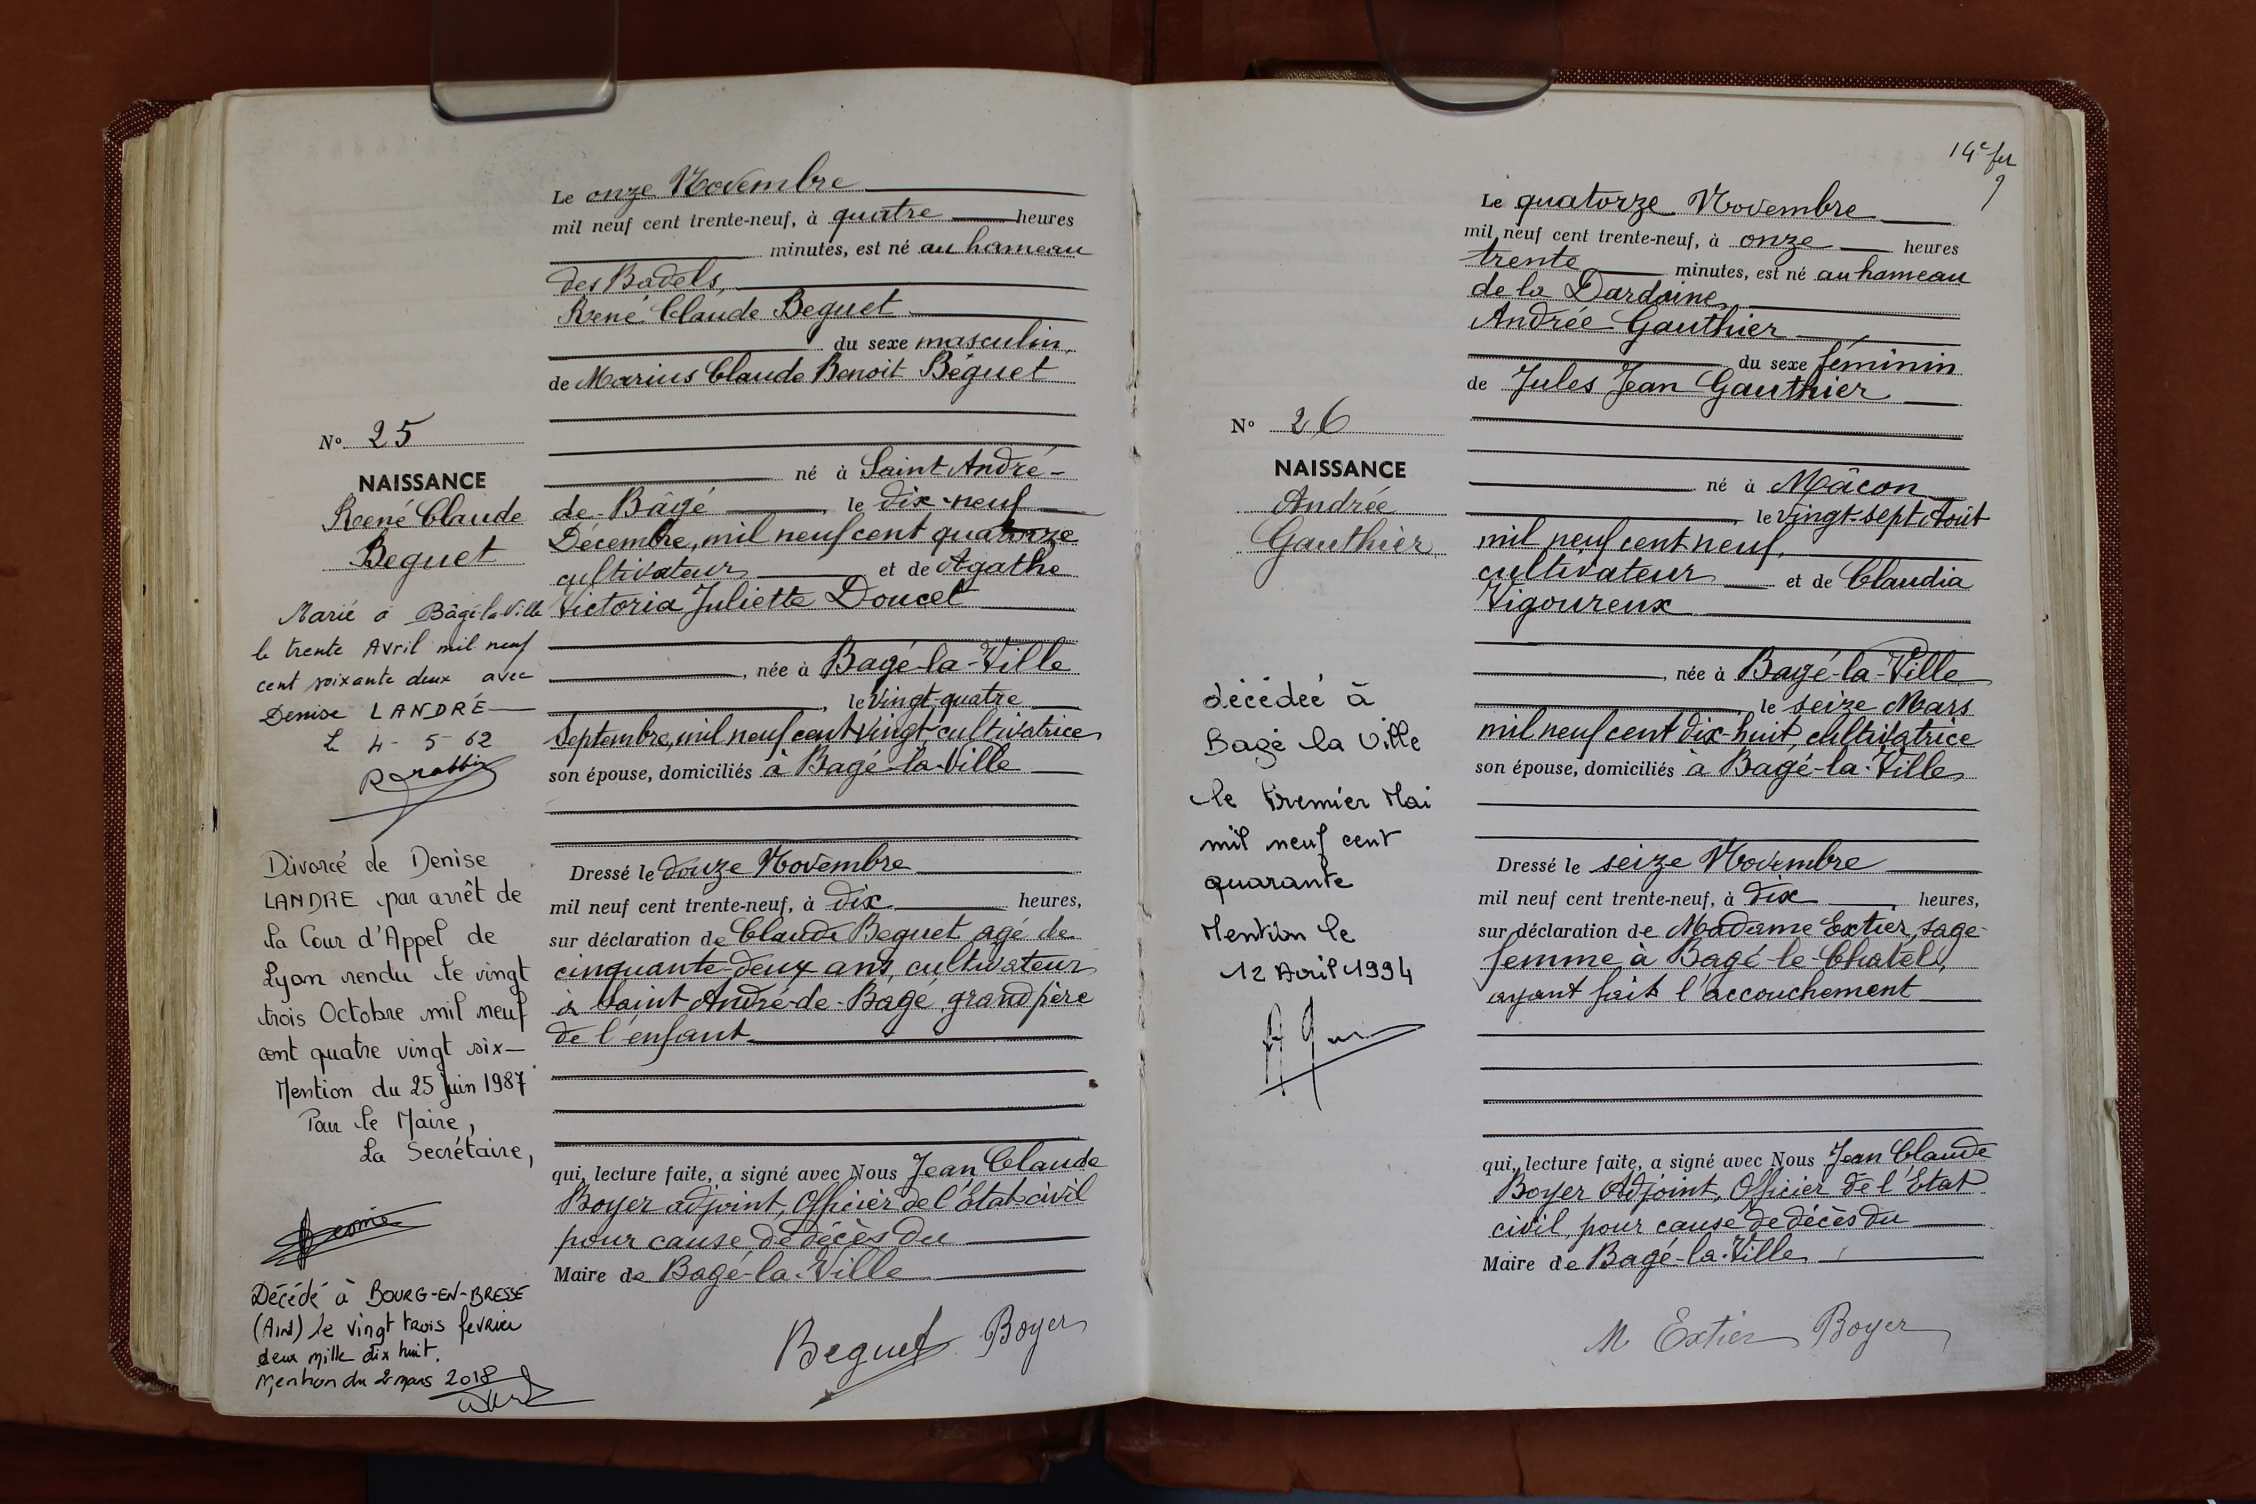 Le onze Novembre
mil neuf cent trente-neuf, à quatre heures
minutes, est né au hameau
des Badels,
René Claude Beguet
du sexe masculin,
de Marius Claude Benoit Béguet
N° 25
NAISSANCE
René Claude
Beguet
né à Saint André-
de-Bâgé, le dix-neuf
Décembre, mil neuf cent quatorze
cultivateur et de Agathe
Victoria Juliette Doucet
née à Bagé-la-Ville
, le vingt quatre
Septembre, mil neuf cent vingt, cultivatrice
son épouse, domiciliés à Bagé-la-Ville
Marié à Bâgé-la-Ville
le trente Avril mil neuf
cent soixante deux avec
Denise LANDRÉ
L 4-5-62
Divorcé de Denise
LANDRE par arrêt de
la Cour d'Appel de
Lyon rendu le vingt
trois Octobre mil neuf
cent quatre vingt six
Mention du 25 juin 1987
Pour le Maire,
La Secrétaire,
Décédé à BOURG-EN-BRESSE
(Ain) le vingt trois fevrier
deux mille dix huit.
Mention du 2 mars 2018
Dressé le douze Novembre
mil neuf cent trente-neuf, à dix heures,
sur déclaration de Claude Beguet agé de
cinquante-deux ans, cultivateur
à Saint André-de-Bagé, grand père
de l'enfant
qui, lecture faite, a signé avec Nous Jean Claude
Boyer adjoint, Officier de l'Etat civil
pour cause de décès du
Maire de Bagé-la-Ville
Beguet Boyer
14e fet
Le quatorze Novembre
mil neuf cent trente-neuf, à onze heures
trente minutes, est né au hameau
de la Dardaine,
Andrée Gauthier
du sexe féminin
de Jules Jean Gauthier
N° 26
NAISSANCE
Andrée
Gauthier
né à Mâcon
, le vingt-sept Août
mil neuf cent neuf,
cultivateur et de Claudia
Vigoureux
, née à Bagé-la-Ville
, le seize Mars
mil neuf cent dix-huit, cultivatrice
son épouse, domiciliés à Bagé-la-Ville
décédée à
Bagé la Ville
le Premier Mai
mil neuf cent
quarante
Mention le
12 Avril 1994
Dressé le seize Novembre
mil neuf cent trente-neuf, à dix heures,
sur déclaration de Madame Extier, sage-
femme à Bagé-le-Chatel,
ayant fait l'accouchement
qui, lecture faite, a signé avec Nous Jean Claude
Boyer Adjoint, Officier de l'Etat
civil, pour cause de décès du
Maire de Bagé-la-Ville
M Extier Boyer